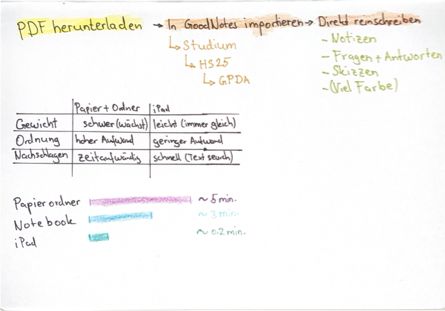 PDF herunterladen → In GoodNotes importieren → Direkt reinschreiben
↳ Studium
↳ HS25
↳ GPDA
- Notizen
- Fragen + Antworten
- Skizzen
- (Viel Farbe)
Papier + Ordner | iPad
Gewicht | schwer (wächst) | leicht (immer gleich)
Ordnung | hoher Aufwand | geringer Aufwand
Nachschlagen | zeitaufwändig | schnell (Text search)
Papierordner ~ 5 min.
Notebook ~ 3 min.
iPad ~ 0.2 min.